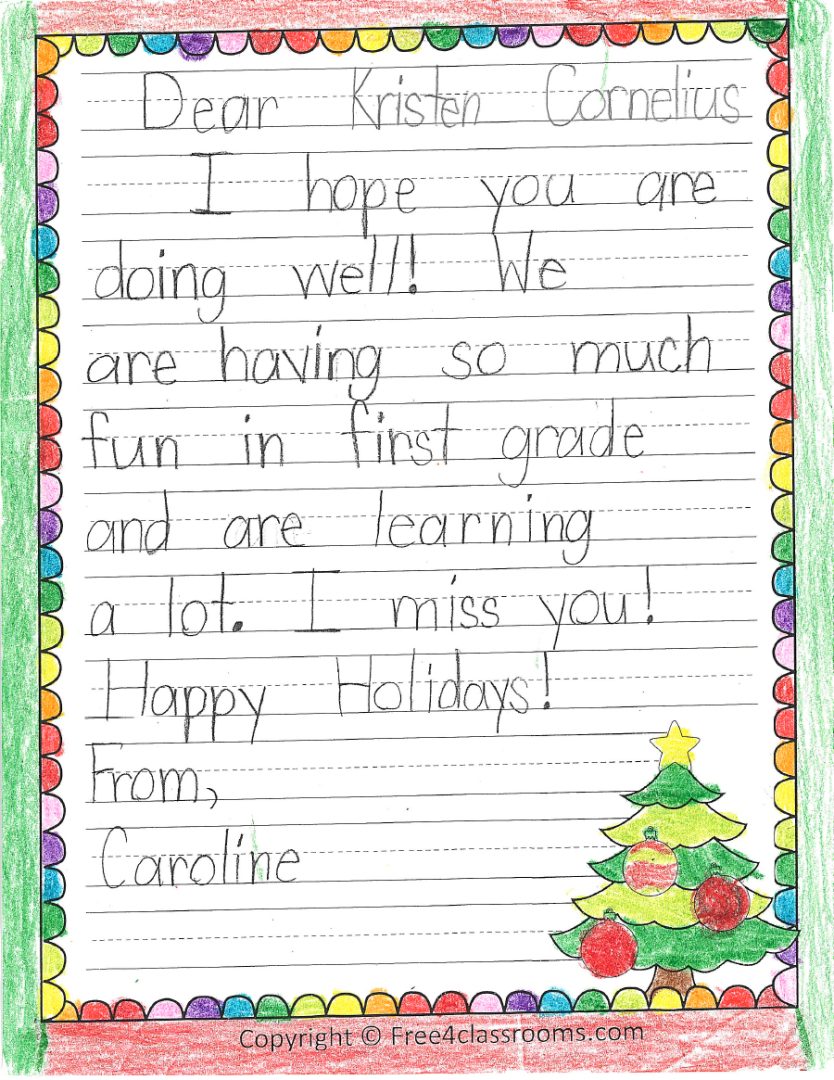 Dear Kristen Cornelius
I hope you are
doing well! We
are having so much
fun in first grade
and are learning
a lot. I miss you!
Happy Holidays!
From,
Caroline
Copyright © Free4classrooms.com